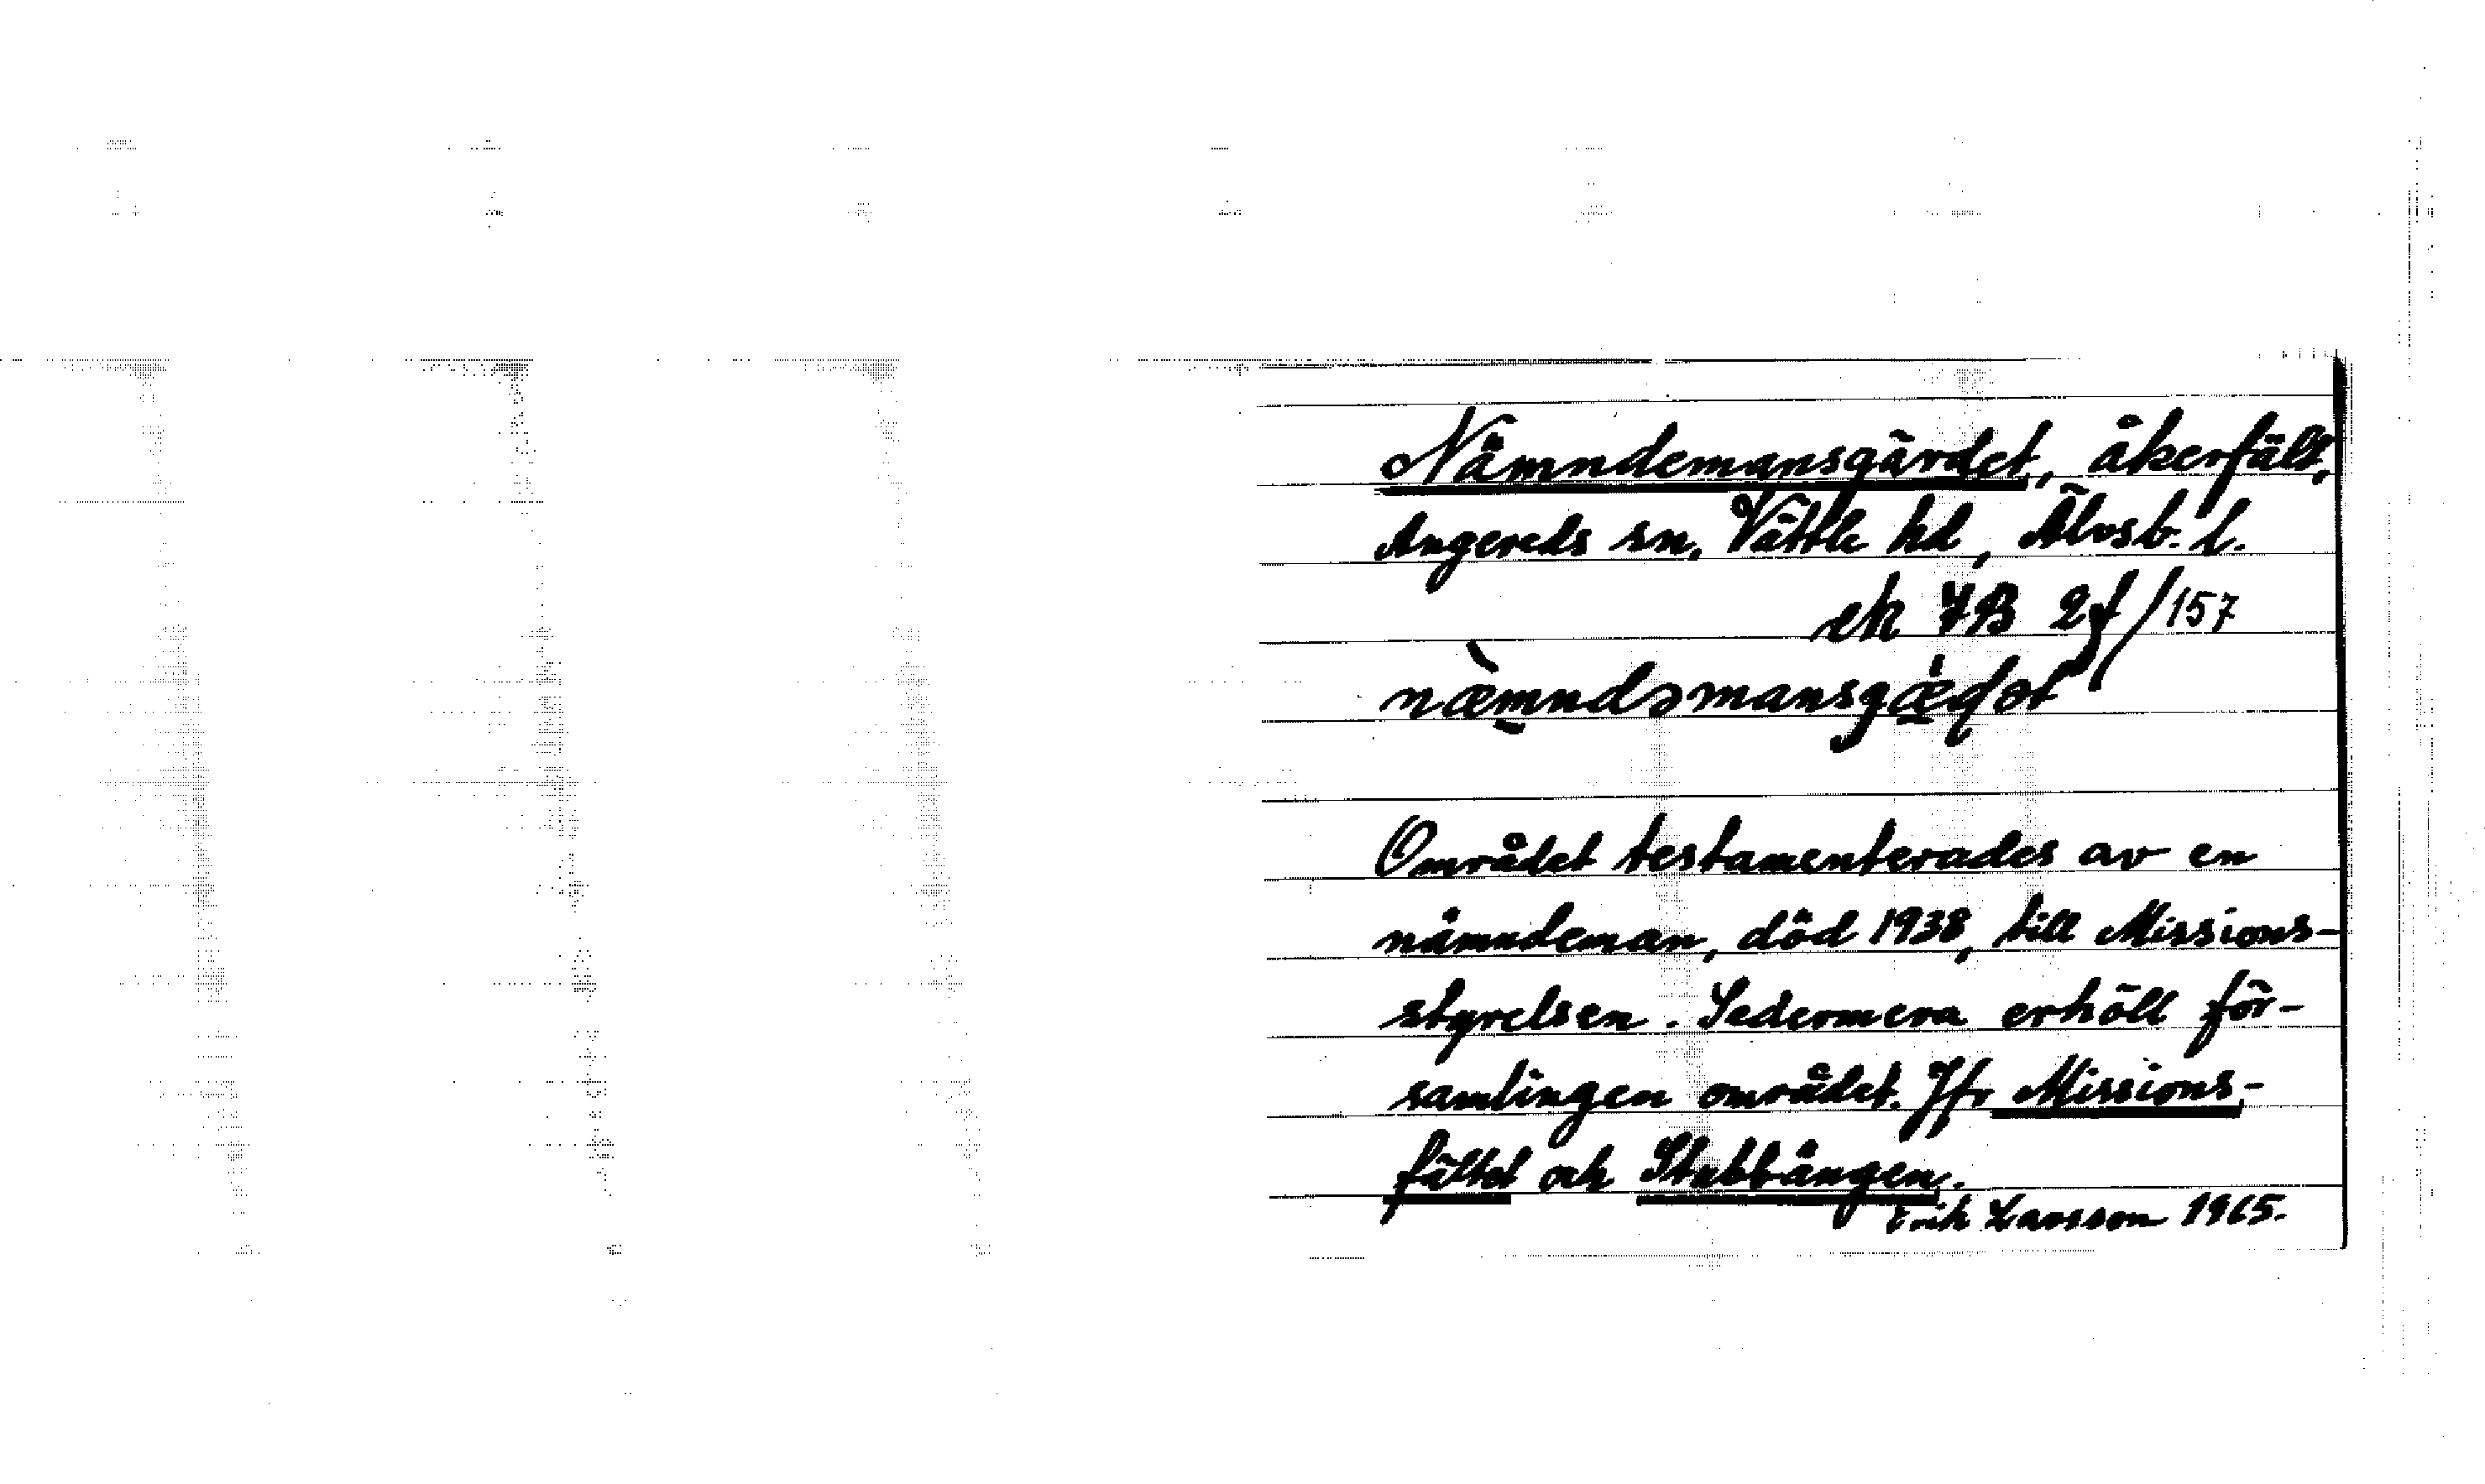 Nämndemansgärdet, åkerfält,
Angereds sn, Vättle hd, Älvsb. l.
ek 7B 2f/157
næ̀mndəmansgæ̣ḍət
Området testamenterades av en
nämndeman, död 1938, till Missions-
styrelsen. Sedermera erhöll för-
samlingen området. Jfr Missions-
fältet och Stubbängen.
Erik Larsson 1965.